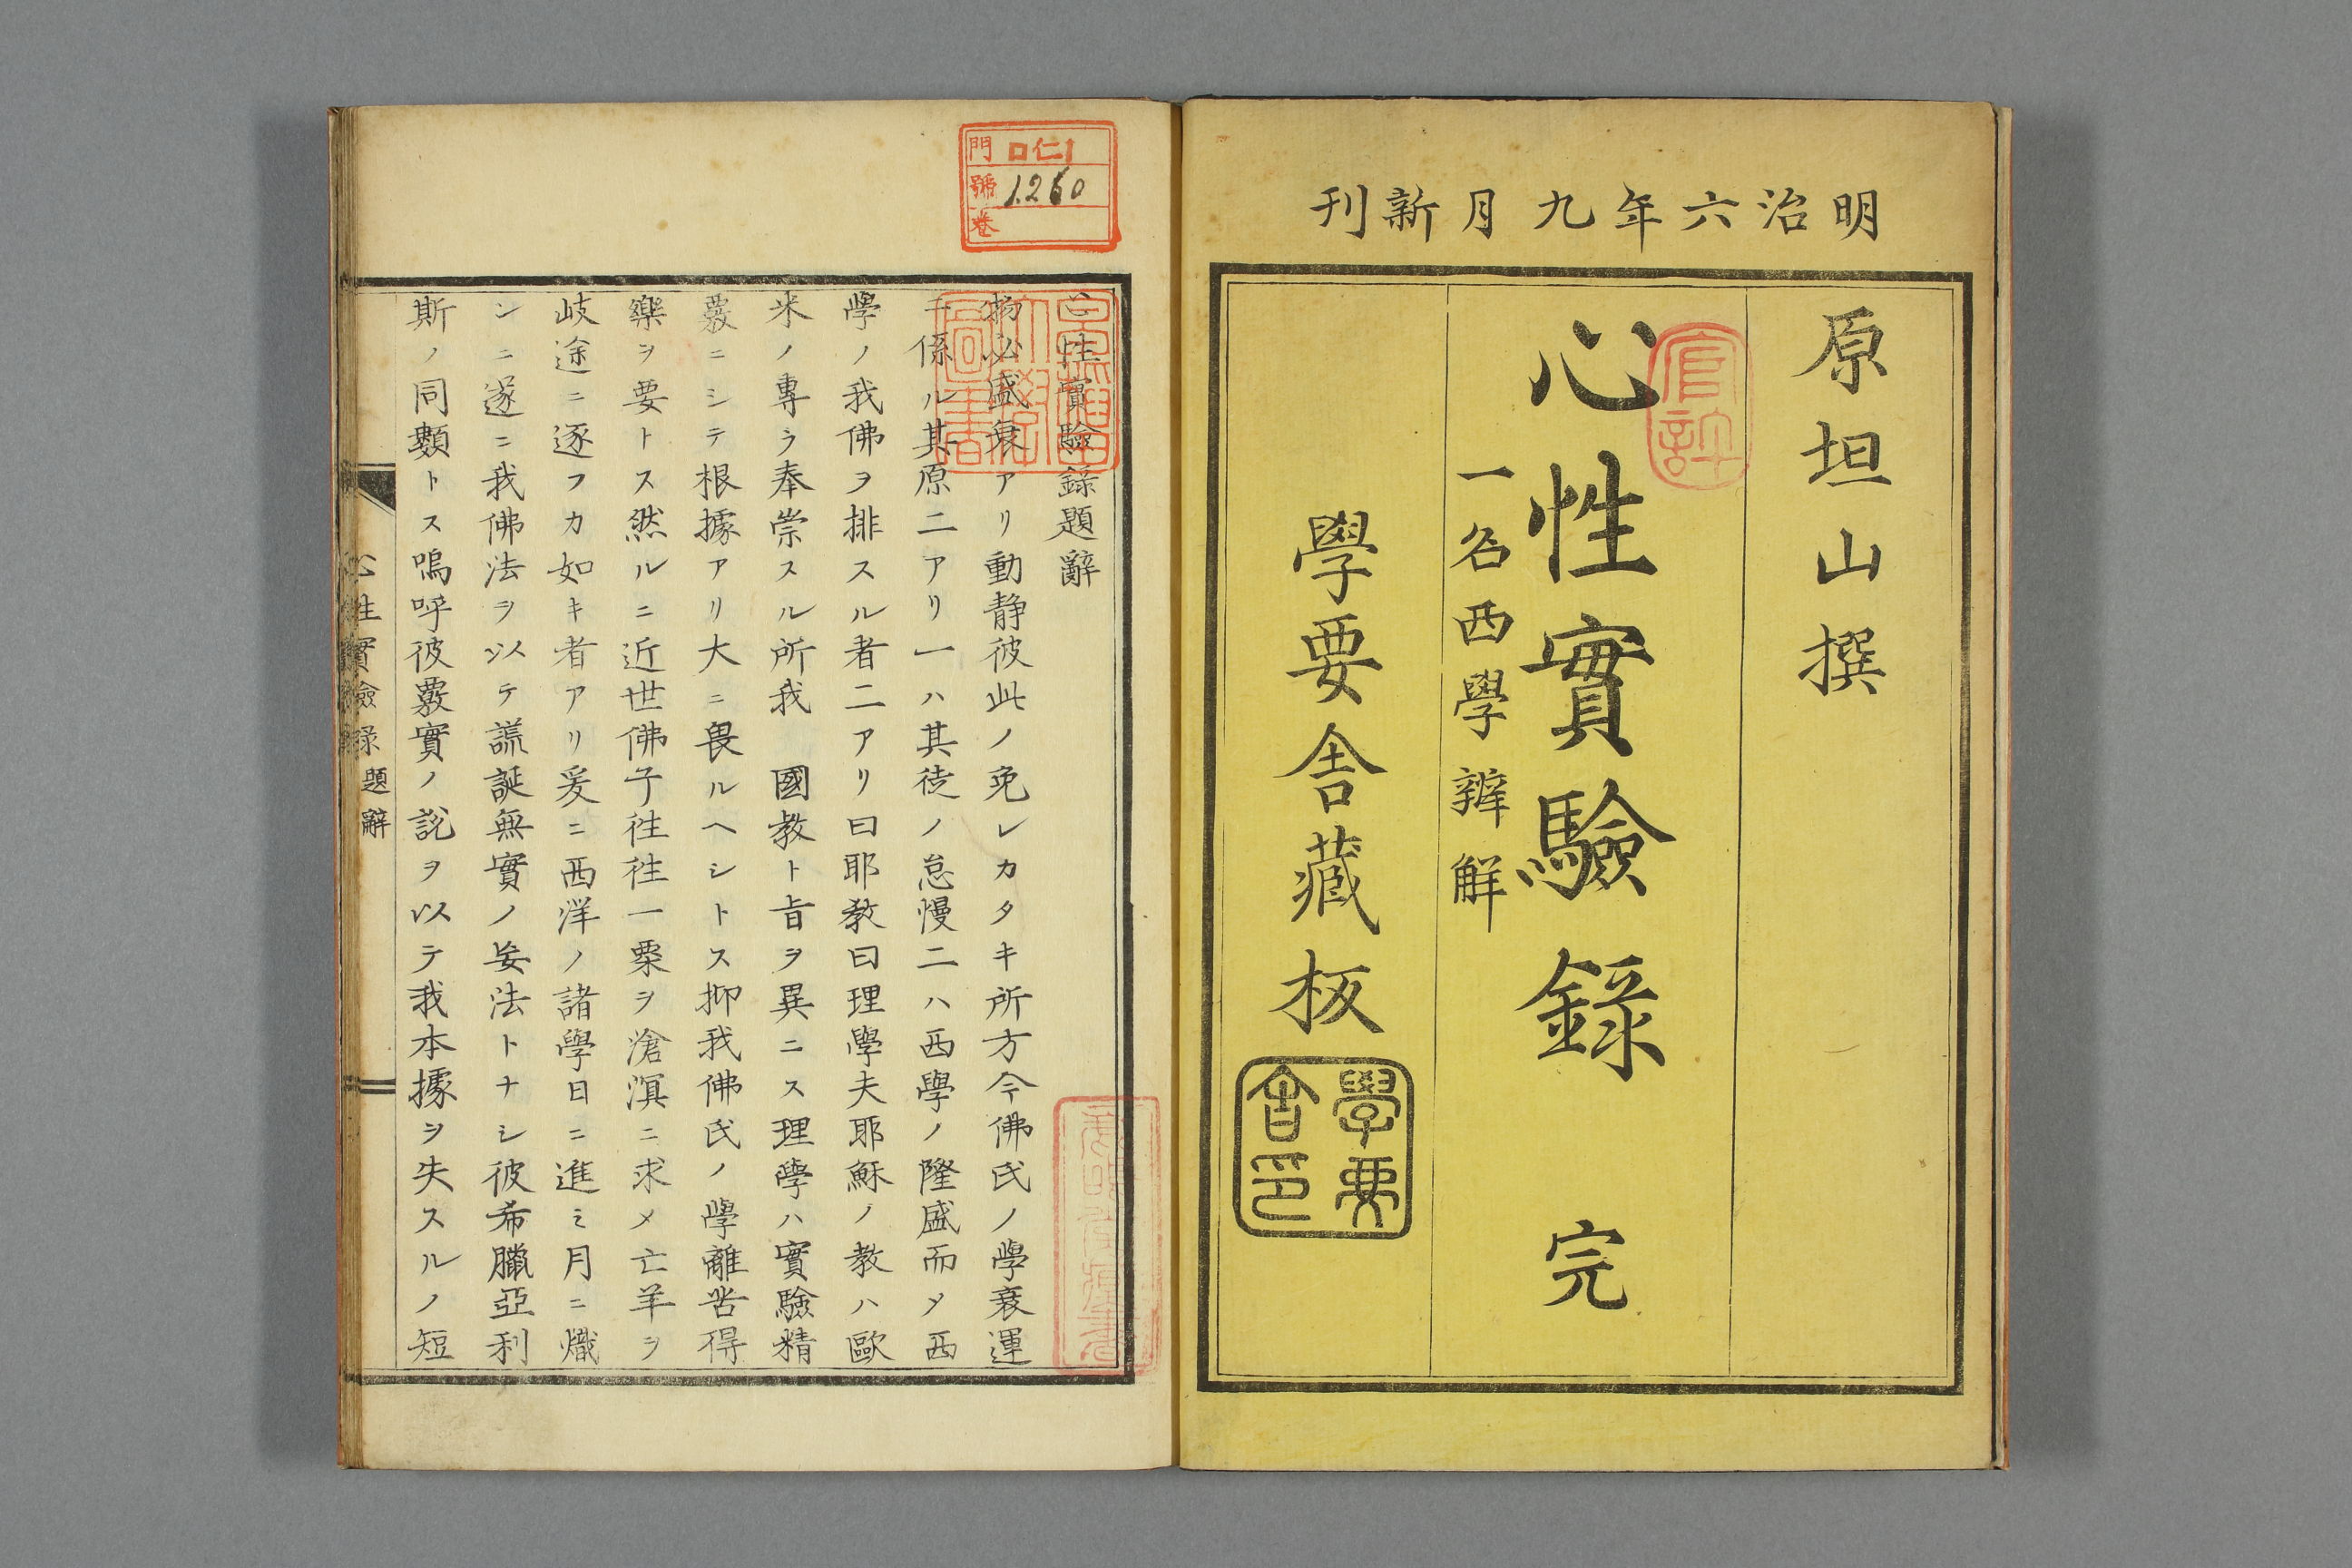 明治六年九月新刊
原坦山撰
官許
心性實驗錄 完
一名西學辨解
學要舍藏板
學要舍印
門 口仁1
號 1260
卷
心性實驗錄題辭
物必盛衰アリ動静彼此ノ免レカタキ所方今佛氏ノ學衰運
ニ係ル其原二アリ一ハ其徒ノ怠慢二ハ西學ノ隆盛而メ西
學ノ我佛ヲ排スル者二アリ曰耶教曰理學夫耶穌ノ教ハ歐
米ノ專ラ奉崇スル所我 國教ト旨ヲ異ニス理學ハ實驗精
覈ニシテ根據アリ大ニ畏ルヘシトス抑我佛氏ノ學離苦得
樂ヲ要トス然ルニ近世佛子徃徃一粟ヲ滄溟ニ求メ亡羊ヲ
岐途ニ逐フカ如キ者アリ爰ニ西洋ノ諸學日ニ進ミ月ニ熾
ンニ遂ニ我佛法ヲ以テ謊誕無實ノ妄法トナシ彼希臘亞利
斯ノ同類トス嗚呼彼覈實ノ說ヲ以テ我本據ヲ失スルノ短
心性實驗錄 題辭